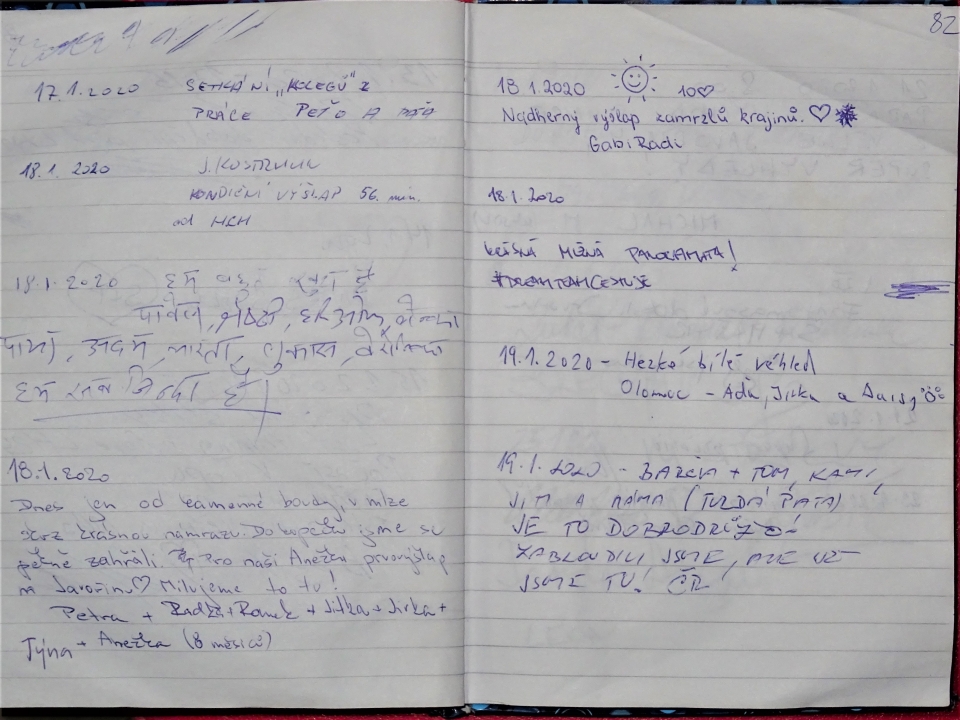 17.1.2020 SETKÁNÍ „KOLEGŮ" Z
PRÁCE PEŤO A
18.1.2020 J.
KONDIČNÍ VÝŠLAP 56. min.
od
18.1.2020 हम बहुत खुश हैं
पावेल,
हम सब जिन्दा हैं
18.1.2020
Dnes jen od kamenné boudy, v mlze
skrz krásnou námrazu. Do kopečka jsme se
pěkně zahřáli. Pro naši Anežku prvovýšlap
na Javořinu ♡ Milujeme to tu!
Petra + Radka + Romek + Jitka + Jirka +
Týna + Anežka (8 měsíců)
82
18.1.2020 10♡
Nádherný výšlap zamrzlů krajinů. ♡
Gabi Radi
18.1.2020
KRÁSNÁ MLŽNÁ PANORAMATA!
#DREAMTEAMCESTUJE
19.1.2020 - Hezké bílé výhled
Olomouc - Ada, Jirka a
19.1.2020 - BARČA + TOM, KAMI,
JIM A MÁMA (TVRDÁ PATA)
JE TO DOBRODRŮŽO!
ZABLOUDILI JSME, ALE UŽ
JSME TU! ČR